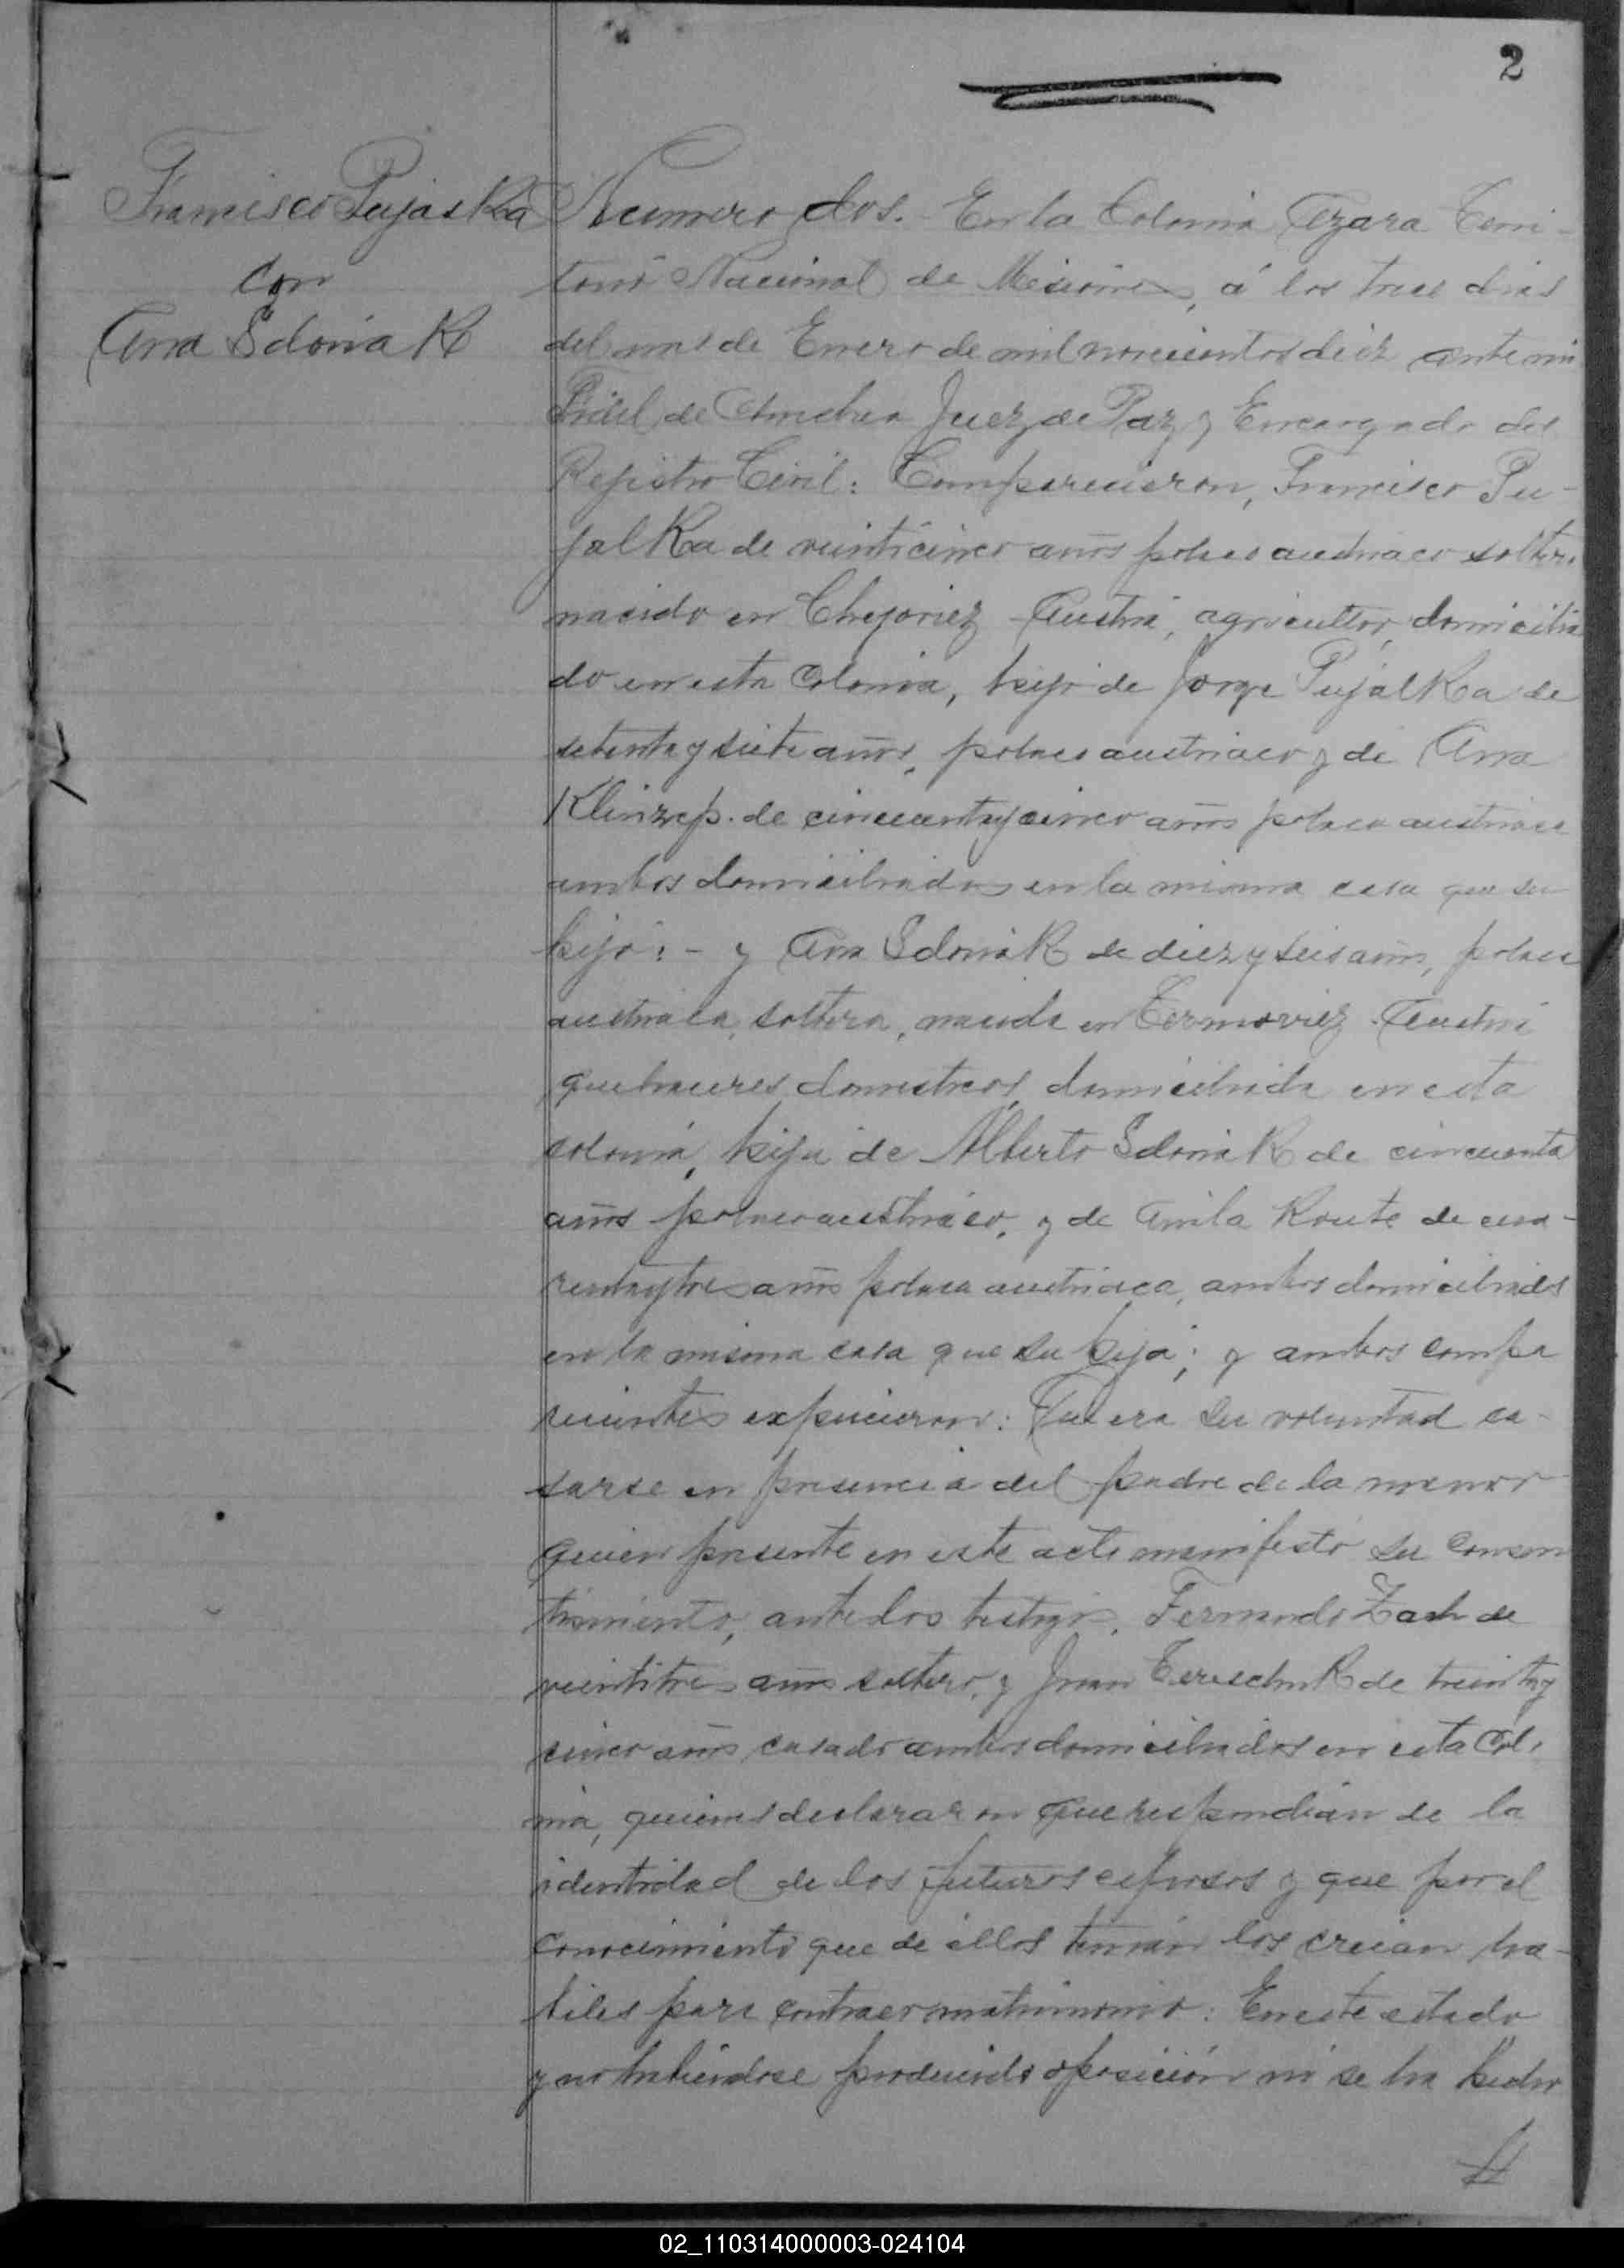 2
Francisco Pujalka
con
Ana Sdoniak
Numero dos. - En la Colonia Azara Terri-
torio Nacional de Misiones, á los trece dias
del mes de Enero de mil novecientos diez ante mi
Fidel de Juez de Paz y Encargado del
Registro Civil: Comparecieron, Francisco Pu-
jalka de veinticinco años polaco austriaco soltero
nacido en Austria, agricultor, domicilia
do en esta Colonia, hijo de Jorge Pujalka de
setenta y siete años, polaco austriaco y de Ana
de cincuenta y cinco años polaca austriaca
ambos domiciliados en la misma casa que su
hijo: - y Ana Sdoniak de diez y seis años, polaca
austriaca, soltera, nacida en Austria
quehaceres domesticos domiciliada en esta
colonia, hija de Alberto Sdoniak de cincuenta
años polaco austriaco, y de de cua-
renta y tres años polaca austriaca, ambos domiciliados
en la misma casa que su hija; y ambos compa
recientes expusieron: Que era su voluntad ca-
sarse en presencia del padre de la menor
quien presente en este acto manifestó su consen
timiento, ante los testigos, Fernando Zach de
veintitres años soltero, y Juan de treinta y
cinco años casado ambos domiciliados en esta Colo
nia, quienes declararon que respondian de la
identidad de los futuros esposos y que por el
conocimiento que de ellos tenian los creian ha-
biles para contraer matrimonio: En este estado
y no habiendose producido oposición ni se ha hecho
02_110314000003-024104